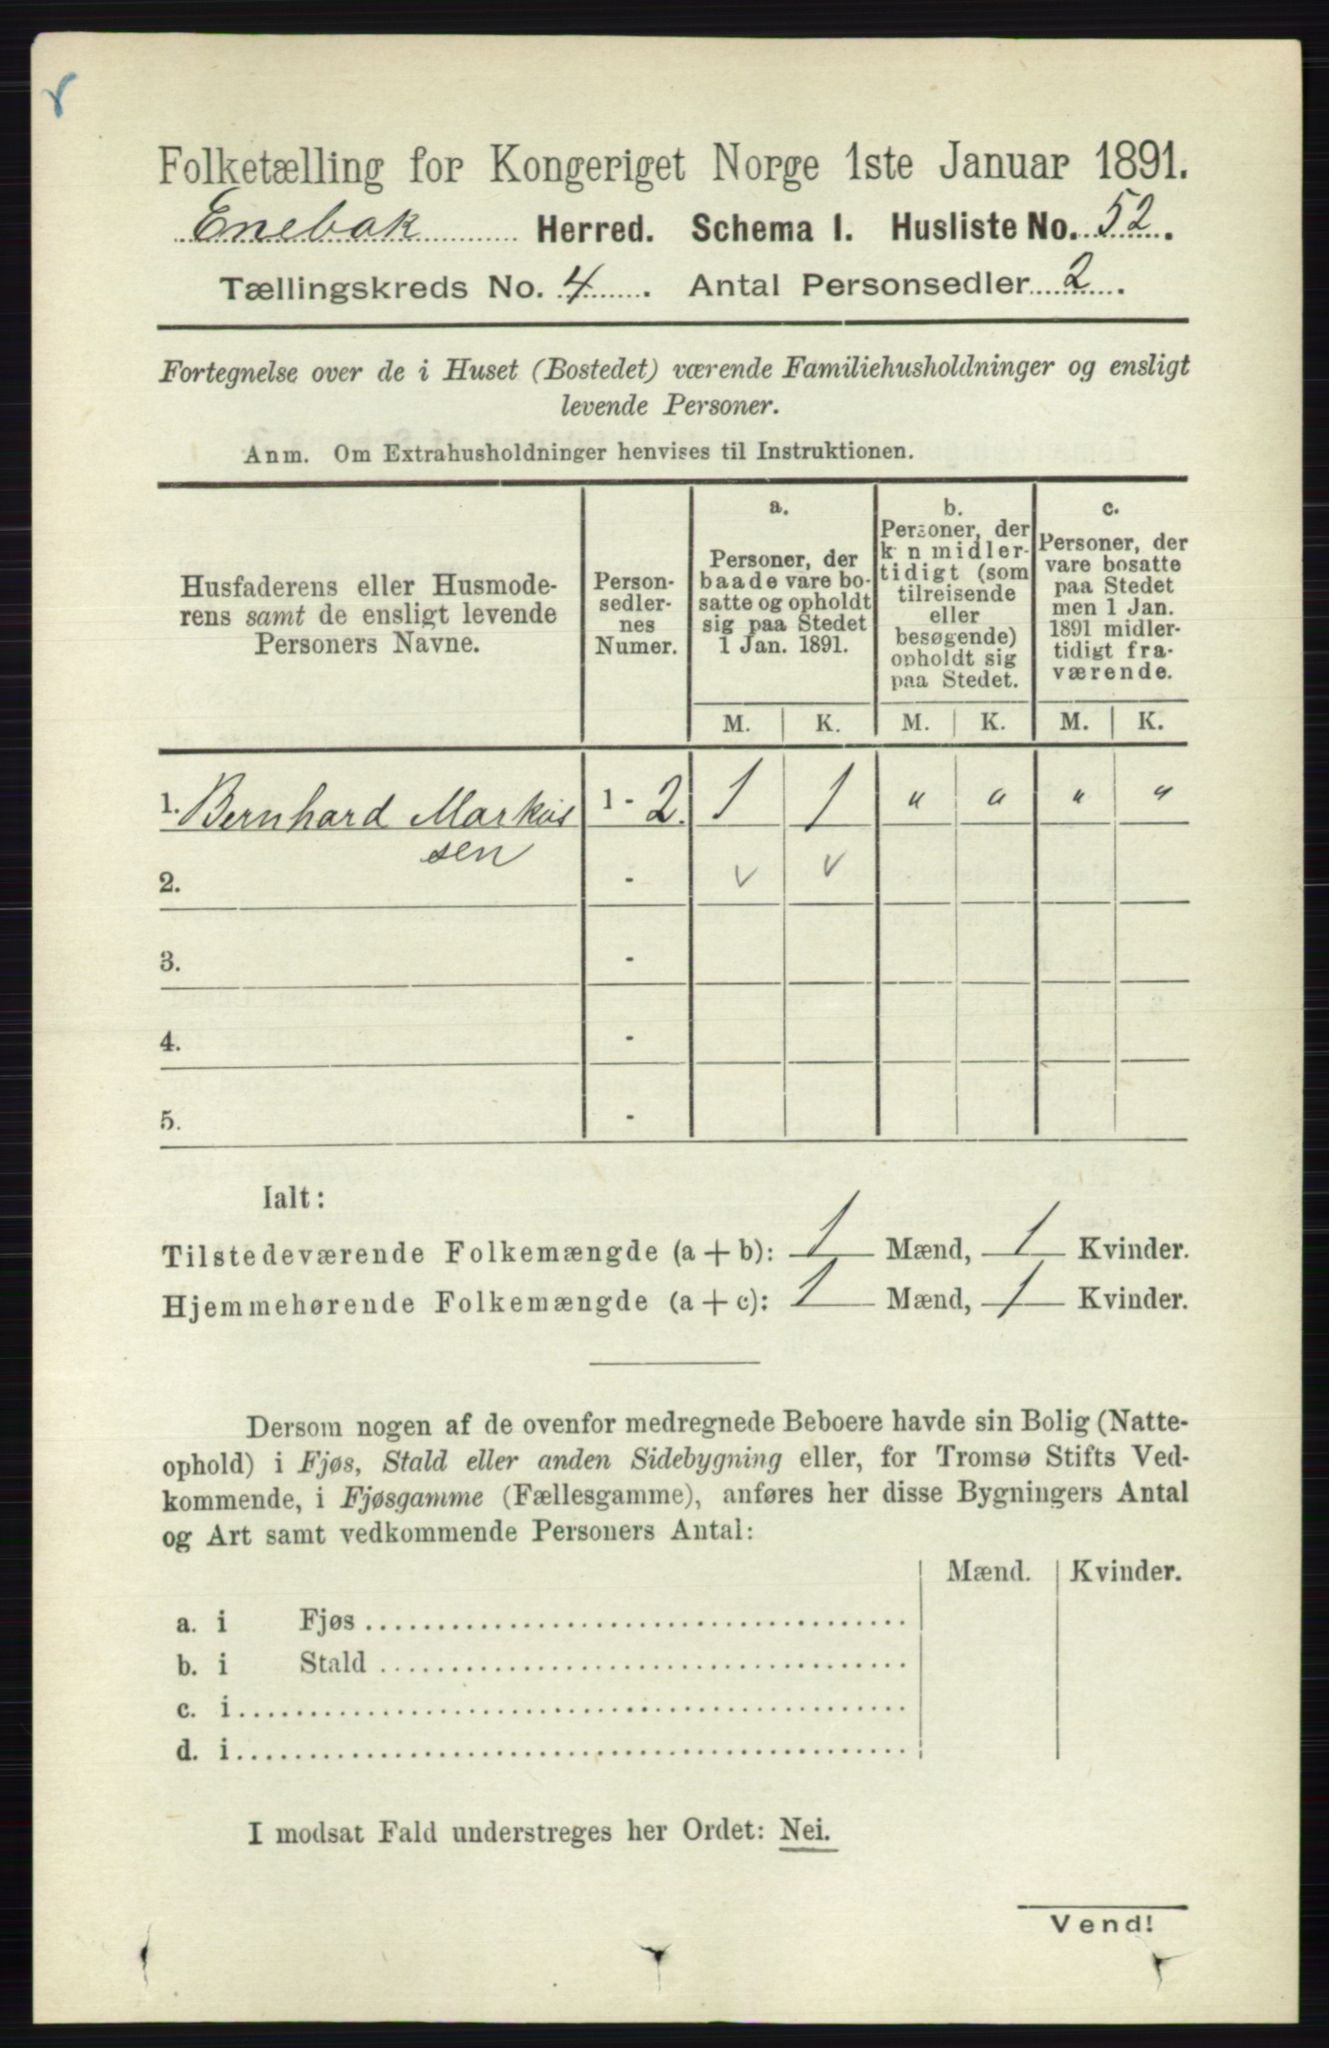 Folketælling for Kongeriget Norge 1ste Januar 1891.
Enebak Herred. Schema I. Husliste No. 52.
Tællingskreds No. 4. Antal Personsedler 2.
Fortegnelse over de i Huset (Bostedet) værende Familiehusholdninger og ensligt
levende Personer.
Anm. Om Extrahusholdninger henvises til Instruktionen.
Husfaderens eller Husmode-
rens samt de ensligt levende
Personers Navne.
Person-
sedler-
nes
Numer.
a.
Personer, der
baade vare bo-
satte og opholdt
sig paa Stedet
1 Jan. 1891.
b.
Personer, der
kun midler-
tidigt (som
tilreisende
eller
besøgende)
opholdt sig
paa Stedet.
c.
Personer, der
vare bosatte
paa Stedet
men 1 Jan.
1891 midler-
tidigt fra-
værende.
M. K. M. K. M. K.
1. Bernhard Markus 1 - 2. 1 1 " " " "
sen
2. - v v
3. -
4. -
5. -
Ialt:
Tilstedeværende Folkemængde (a + b): 1 Mænd, 1 Kvinder.
Hjemmehørende Folkemængde (a + c): 1 Mænd, 1 Kvinder.
Dersom nogen af de ovenfor medregnede Beboere havde sin Bolig (Natte-
ophold) i Fjøs, Stald eller anden Sidebygning eller, for Tromsø Stifts Ved-
kommende, i Fjøsgamme (Fællesgamme), anføres her disse Bygningers Antal
og Art samt vedkommende Personers Antal:
Mænd. Kvinder.
a. i Fjøs
b. i Stald
c. i
d. i
I modsat Fald understreges her Ordet: Nei.
Vend!